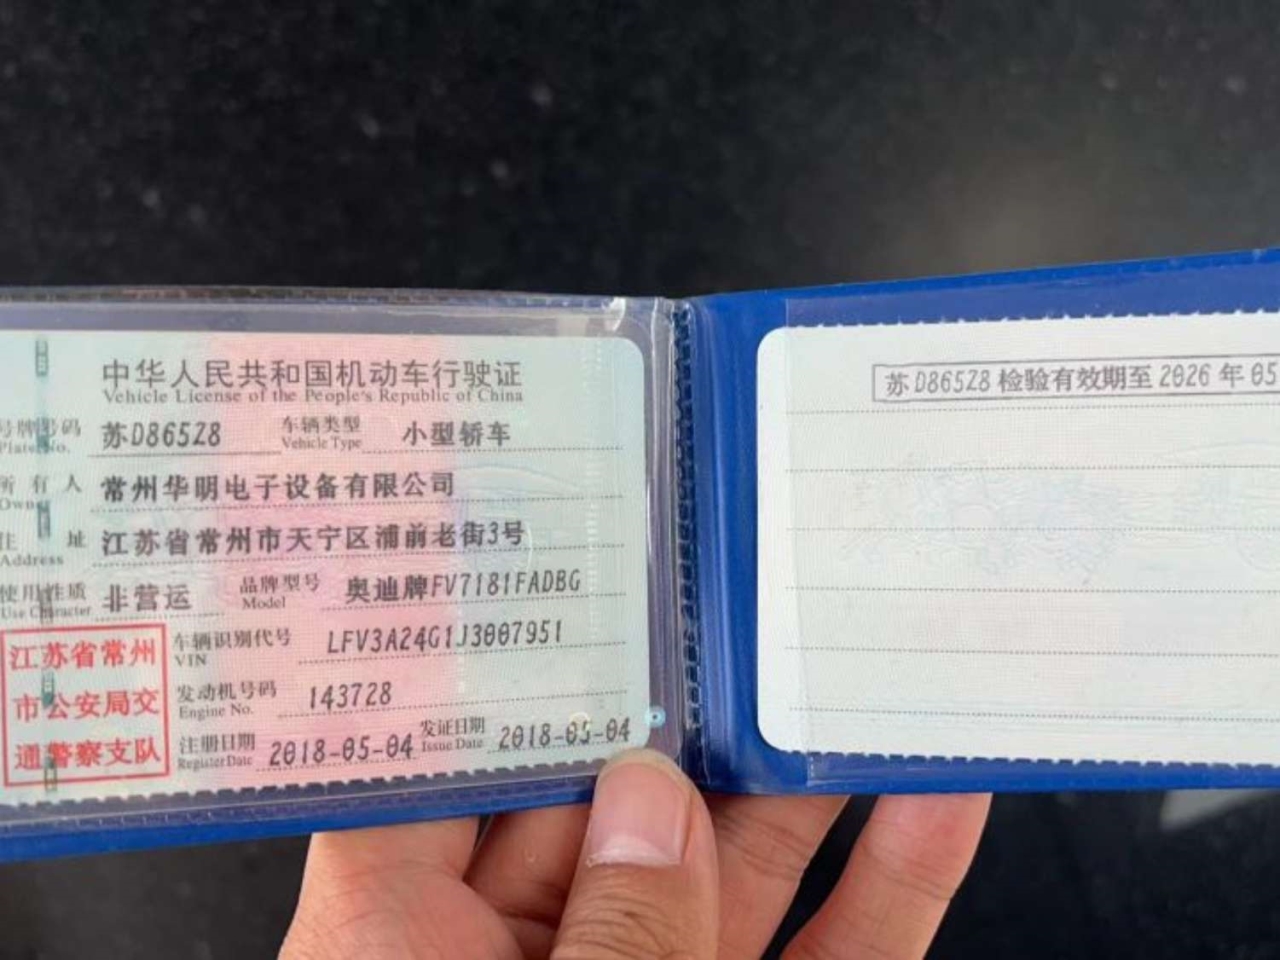 中华人民共和国机动车行驶证
Vehicle License of the People's Republic of China
号牌号码 苏D865Z8 车辆类型 小型轿车
Plate No. Vehicle Type
所有人 常州华明电子设备有限公司
Owner
住址 江苏省常州市天宁区浦前老街3号
Address
使用性质 非营运 品牌型号 奥迪牌FV7181FADBG
Use Character Model
车辆识别代号 LFV3A24G1J3007951
VIN
发动机号码 143728
Engine No.
注册日期 2018-05-04 发证日期 2018-05-04
Register Date Issue Date
江苏省常州
市公安局交
通警察支队
苏D865Z8检验有效期至2026年05